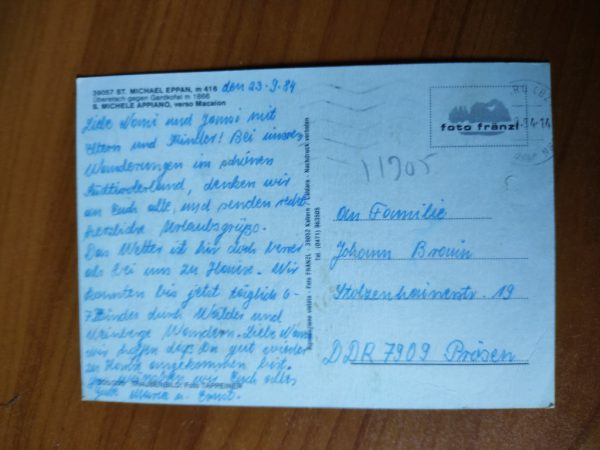 39057 ST. MICHAEL EPPAN, m 416
Überetsch gegen Gantkofel m 1866
S. MICHELE APPIANO, verso Macaion
den 23.9.84
Liebe Nomi und Janni mit
Eltern und Kinder! Bei unseren
Wanderungen im schönen
Südtirolerland, denken wir
an Euch alle, und senden recht
herzliche Urlaubsgrüße.
Das Wetter ist hier doch besser
als bei uns zu Hause. Wir
konnten bis jetzt täglich 6-
7 Stunden durch Wälder und
Weinberge Wandern. Liebe
wir hoffen daß Du gut wieder
zu Hause angekommen bist.
wünschen wir Euch alles
Gute Maria u. Ernst.
TRAUBENBILD: Foto TAPPEINER
Foto FRÄNZL - 39052 Kaltern / Caldaro - Nachdruck verboten
Tel. (0471) 963505
foto fränzl
11905
An Familie
Johann Braun
Stolzenhainerstr. 19
DDR 7909 Prösen